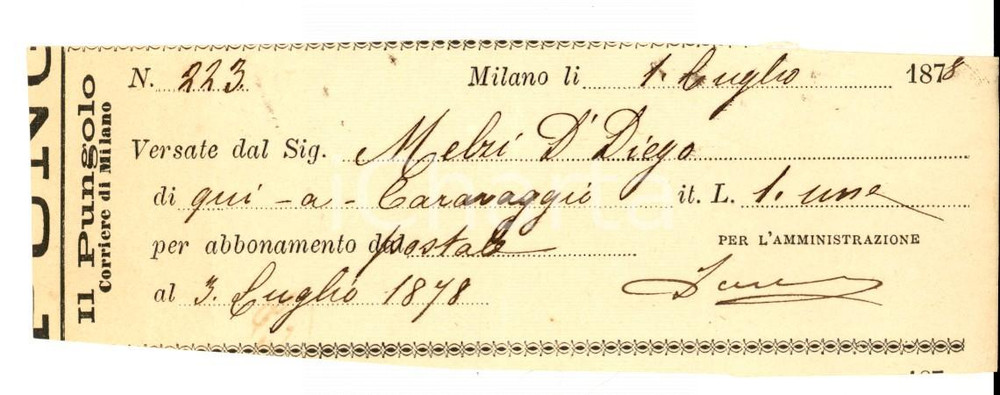 Il Pungolo
Corriere di Milano
N. 223. Milano li 1. Luglio 1878
Versate dal Sig. Melzi D' Diego
di qui - a - Caravaggio it. L. 1. una
per abbonamento dal postale
PER L'AMMINISTRAZIONE
al 3. Luglio 1878